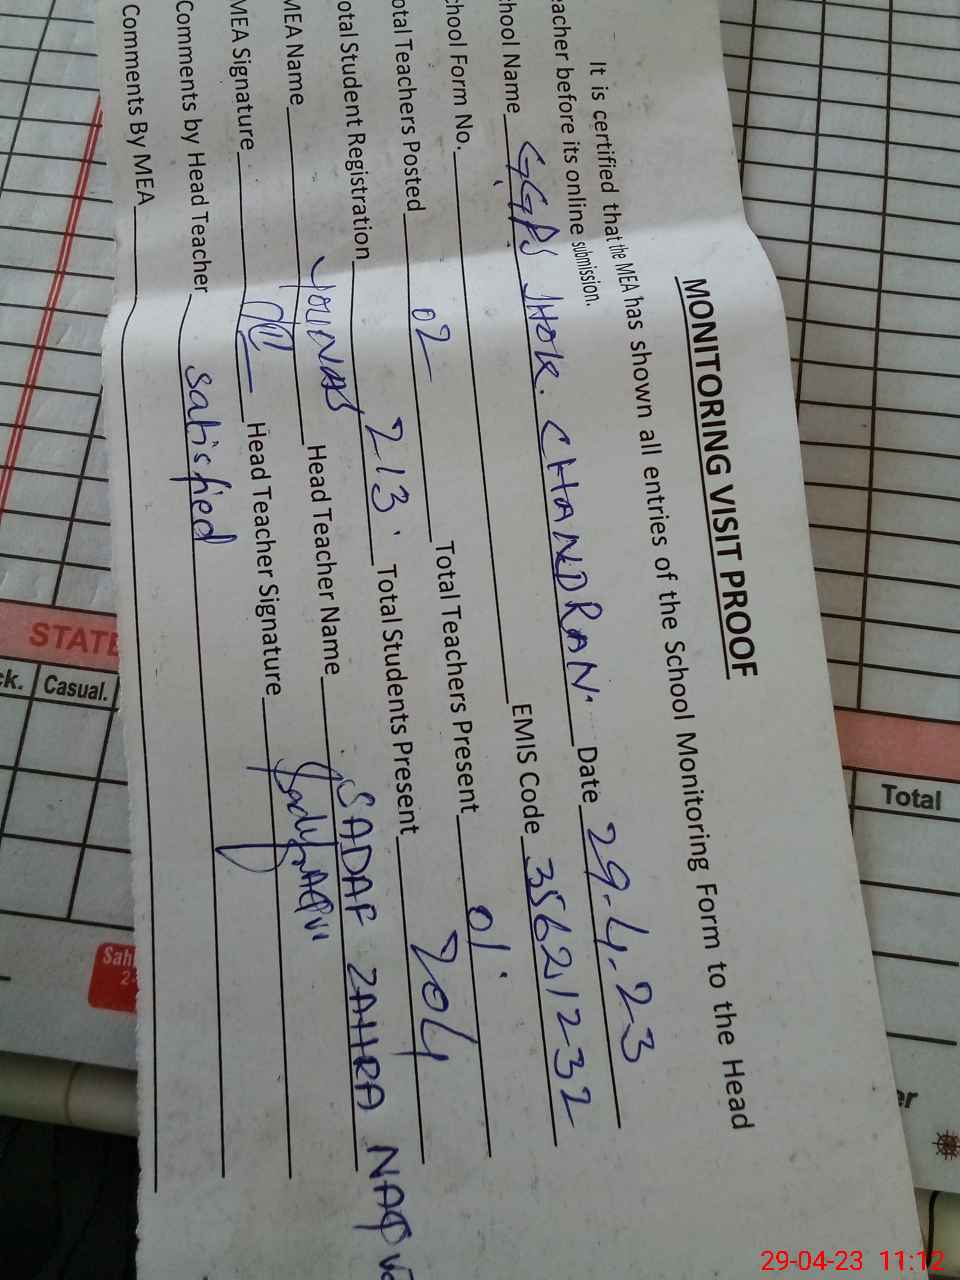 MONITORING VISIT PROOF
It is certified that the MEA has shown all entries of the School Monitoring Form to the Head
eacher before its online submission.
chool Name GGPS JHOK. CHANDRAN. Date 29.4.23
chool Form No. EMIS Code 35621232
otal Teachers Posted 02 Total Teachers Present 01.
otal Student Registration 213. Total Students Present 204
MEA Name YOUNAS Head Teacher Name SADAF ZAHRA NAQV
MEA Signature Head Teacher Signature
Comments by Head Teacher satisfied
Comments By MEA
STATE
ck. Casual.
Total
Sah
2
er
29-04-23 11:12